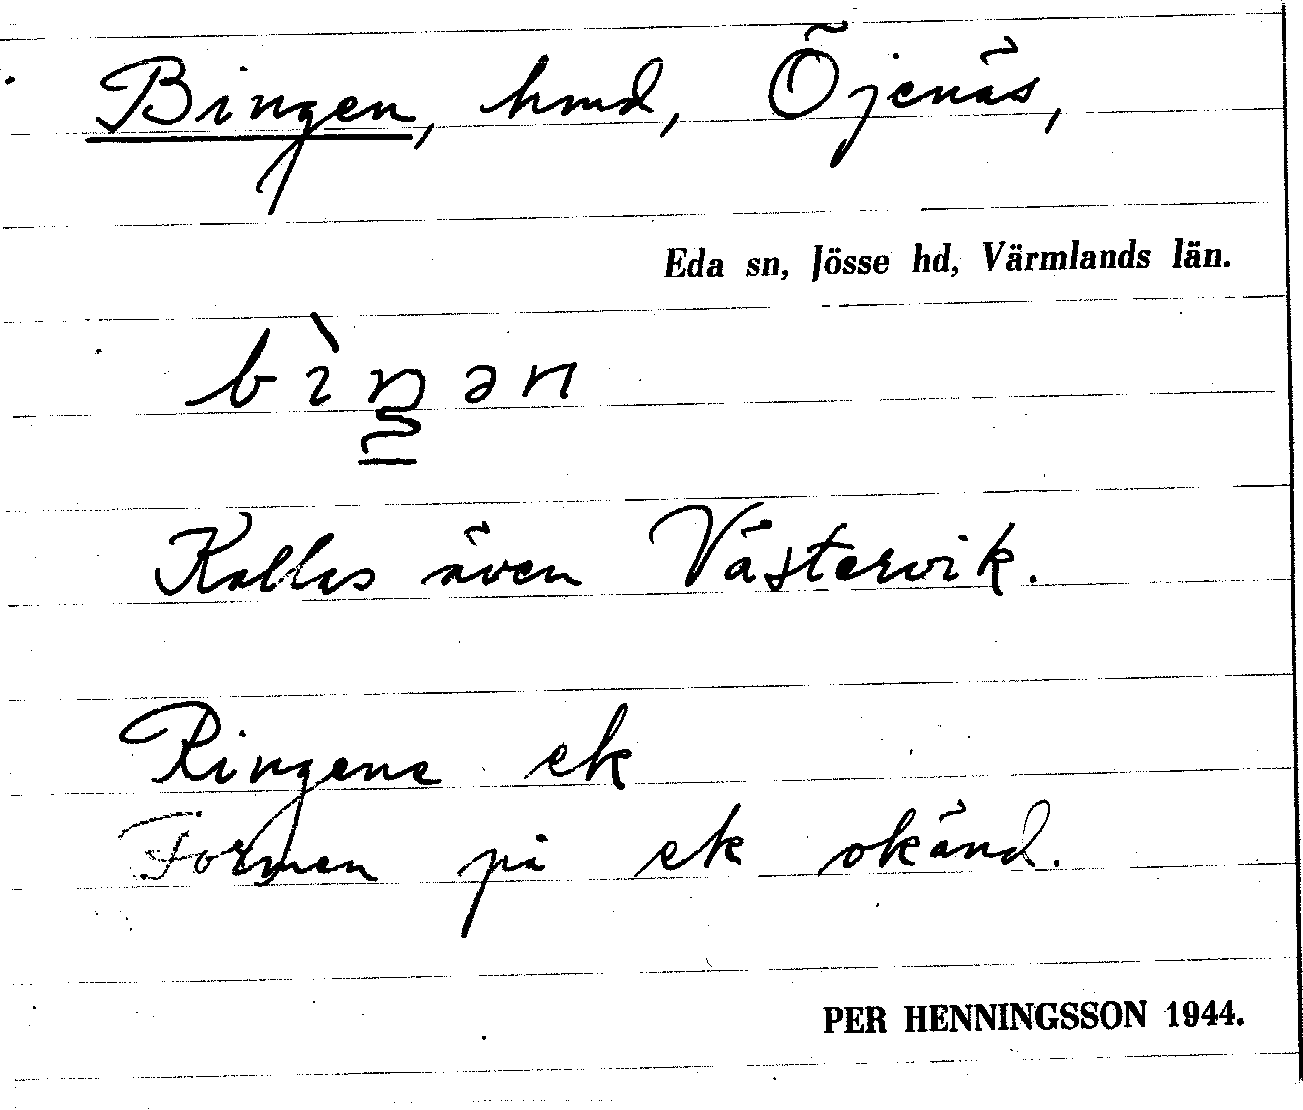 Bingen, hmd, Öjenäs,
Eda sn, Jösse hd, Värmlands län.
bìŋən
Kallas även Västervik.
Ringene ek
Formen på ek okänd.
PER HENNINGSSON 1944.